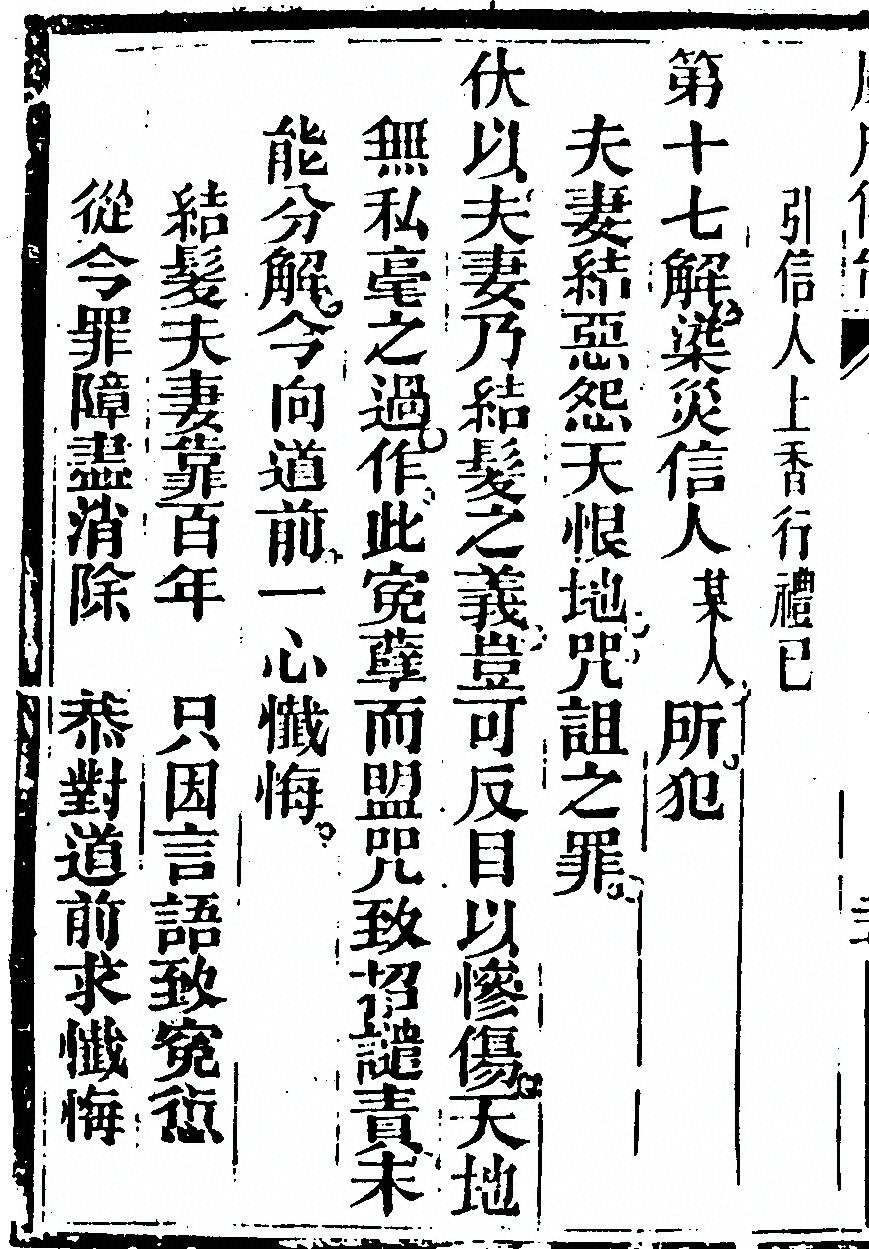 引信人上香行禮已
第十七解染災信人某人所犯
夫妻結惡怨天恨地咒詛之罪
伏以夫妻乃結髮之義豈可反目以慘傷天地
無私毫之過作此寃孽而盟咒致招譴責未
能分解今向道前一心懺悔
結髮夫妻靠百年　只因言語致寃愆
從今罪障盡消除　恭對道前求懺悔